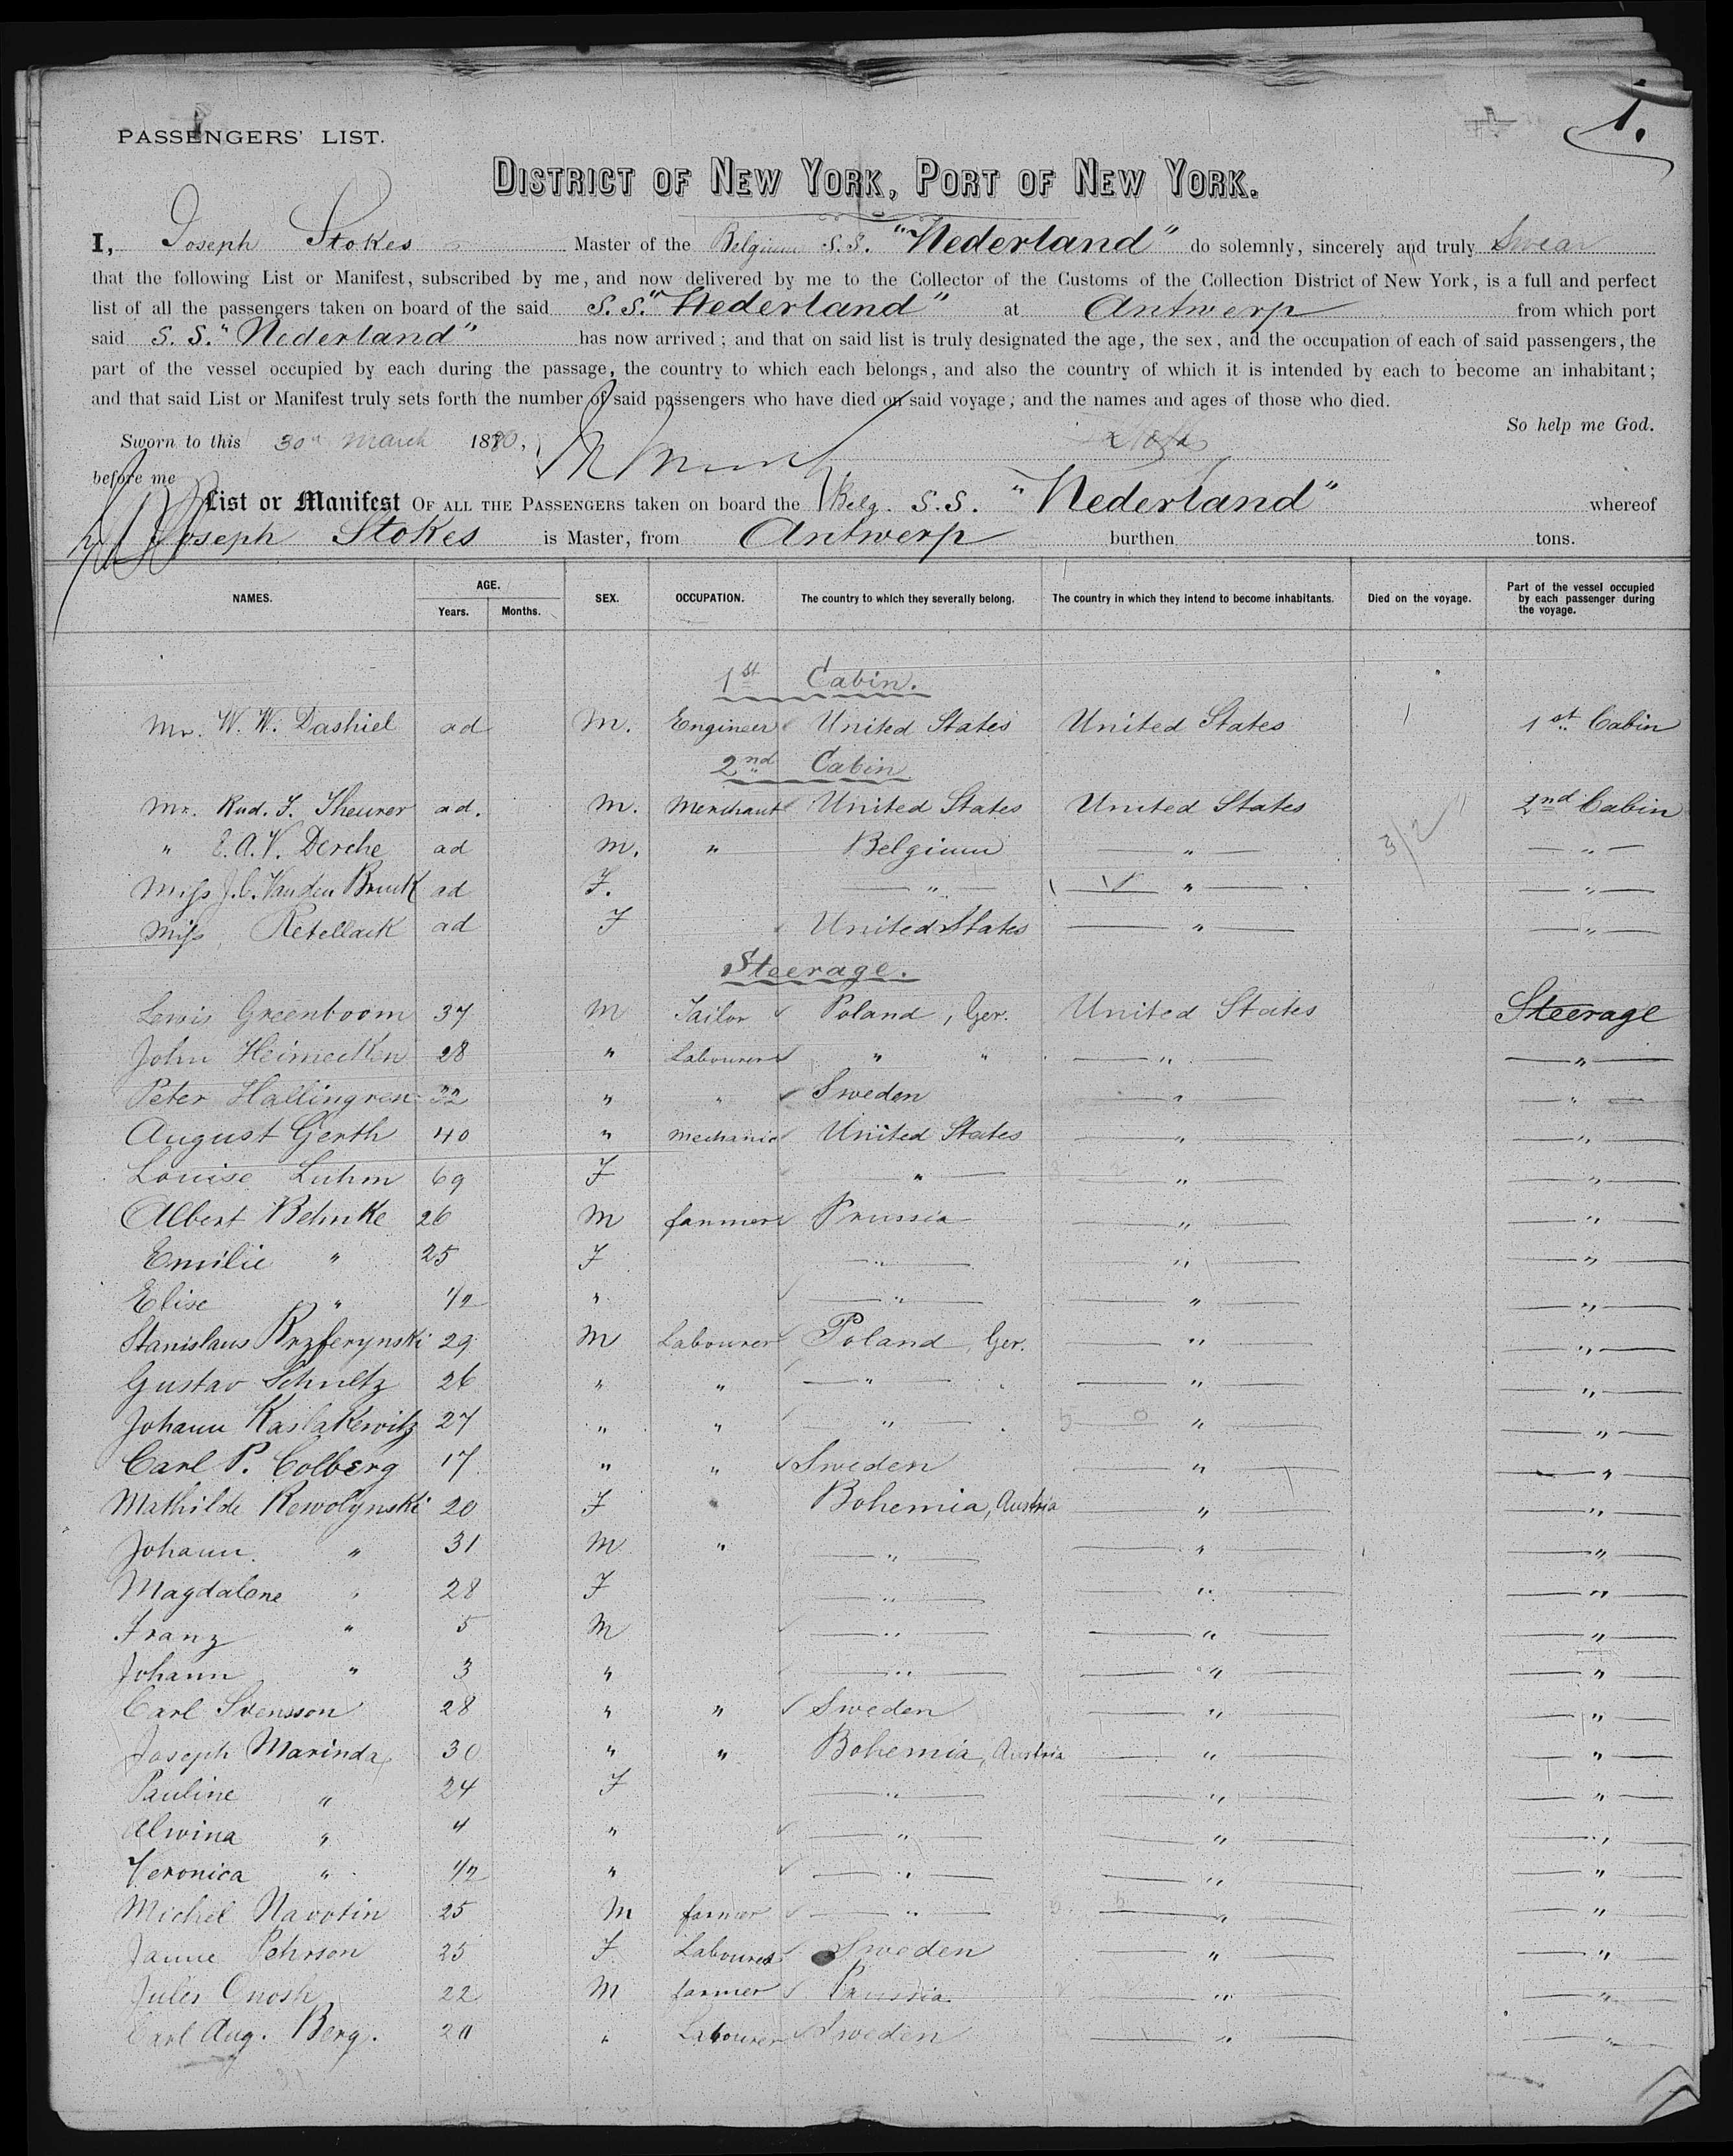 1.
PASSENGERS' LIST.
DISTRICT OF NEW YORK, PORT OF NEW YORK.
I, Joseph Stokes Master of the Belgium S.S. "Nederland" do solemnly, sincerely and truly Swear
that the following List or Manifest, subscribed by me, and now delivered by me to the Collector of the Customs of the Collection District of New York, is a full and perfect
list of all the passengers taken on board of the said S.S. "Nederland" at Antwerp from which port
said S.S. "Nederland" has now arrived; and that on said list is truly designated the age, the sex, and the occupation of each of said passengers, the
part of the vessel occupied by each during the passage, the country to which each belongs, and also the country of which it is intended by each to become an inhabitant;
and that said List or Manifest truly sets forth the number of said passengers who have died on said voyage, and the names and ages of those who died.
So help me God.
Sworn to this 30th March 1880,
before me
List or Manifest OF ALL THE PASSENGERS taken on board the Belg. S.S. "Nederland" whereof
Joseph Stokes is Master, from Antwerp burthen tons.
NAMES. AGE. Years. Months. SEX. OCCUPATION. The country to which they severally belong. The country in which they intend to become inhabitants. Died on the voyage. Part of the vessel occupied by each passenger during the voyage.
1st Cabin.
Mr. W. W. Dashiel ad M. Engineer United States United States 1st Cabin
2nd Cabin
Mr. Rud. F. Sheurer ad. M. Merchant United States United States 2nd Cabin
" E. A. V. Derche ad M. " Belgium " "
Miss J. C. Vanden Bruck ad F. " " "
Miss Retellack ad F United States " "
Steerage.
Lewis Greenboom 37 M Tailor Poland, Ger. United States Steerage
John Heimecken 28 " Labourer " " " "
Peter Hallingren 32 " " Sweden " "
August Gerth 40 " Mechanic United States " "
Louise Luhm 69 F " " "
Albert Behnke 26 M farmer Prussia " "
Emilie " 25 F " " "
Elise " 1/2 " " " "
Stanislaus 29 M Labourer Poland, Ger. " "
Gustav Schultz 26 " " " " "
Johann Kaslakewitz 27 " " " " "
Carl P. Colberg 17 " " Sweden " "
Mathilde Rewolynski 20 F " Bohemia, Austria " "
Johann " 31 M " " " "
Magdalene " 28 F " " "
Franz " 5 M " " "
Johann " 3 " " " "
Carl Svensson 28 " " Sweden " "
Joseph Marinda 30 " " Bohemia, Austria " "
Pauline " 24 F " " "
Alwina " 4 " " " "
Veronica " 1/2 " " " "
Michel Navotin 25 M farmer " " "
Janne Pehrson 25 F Labourer Sweden " "
Jules Onosh 22 M farmer Prussia " "
Carl Aug. Berg. 20 " Labourer Sweden " "